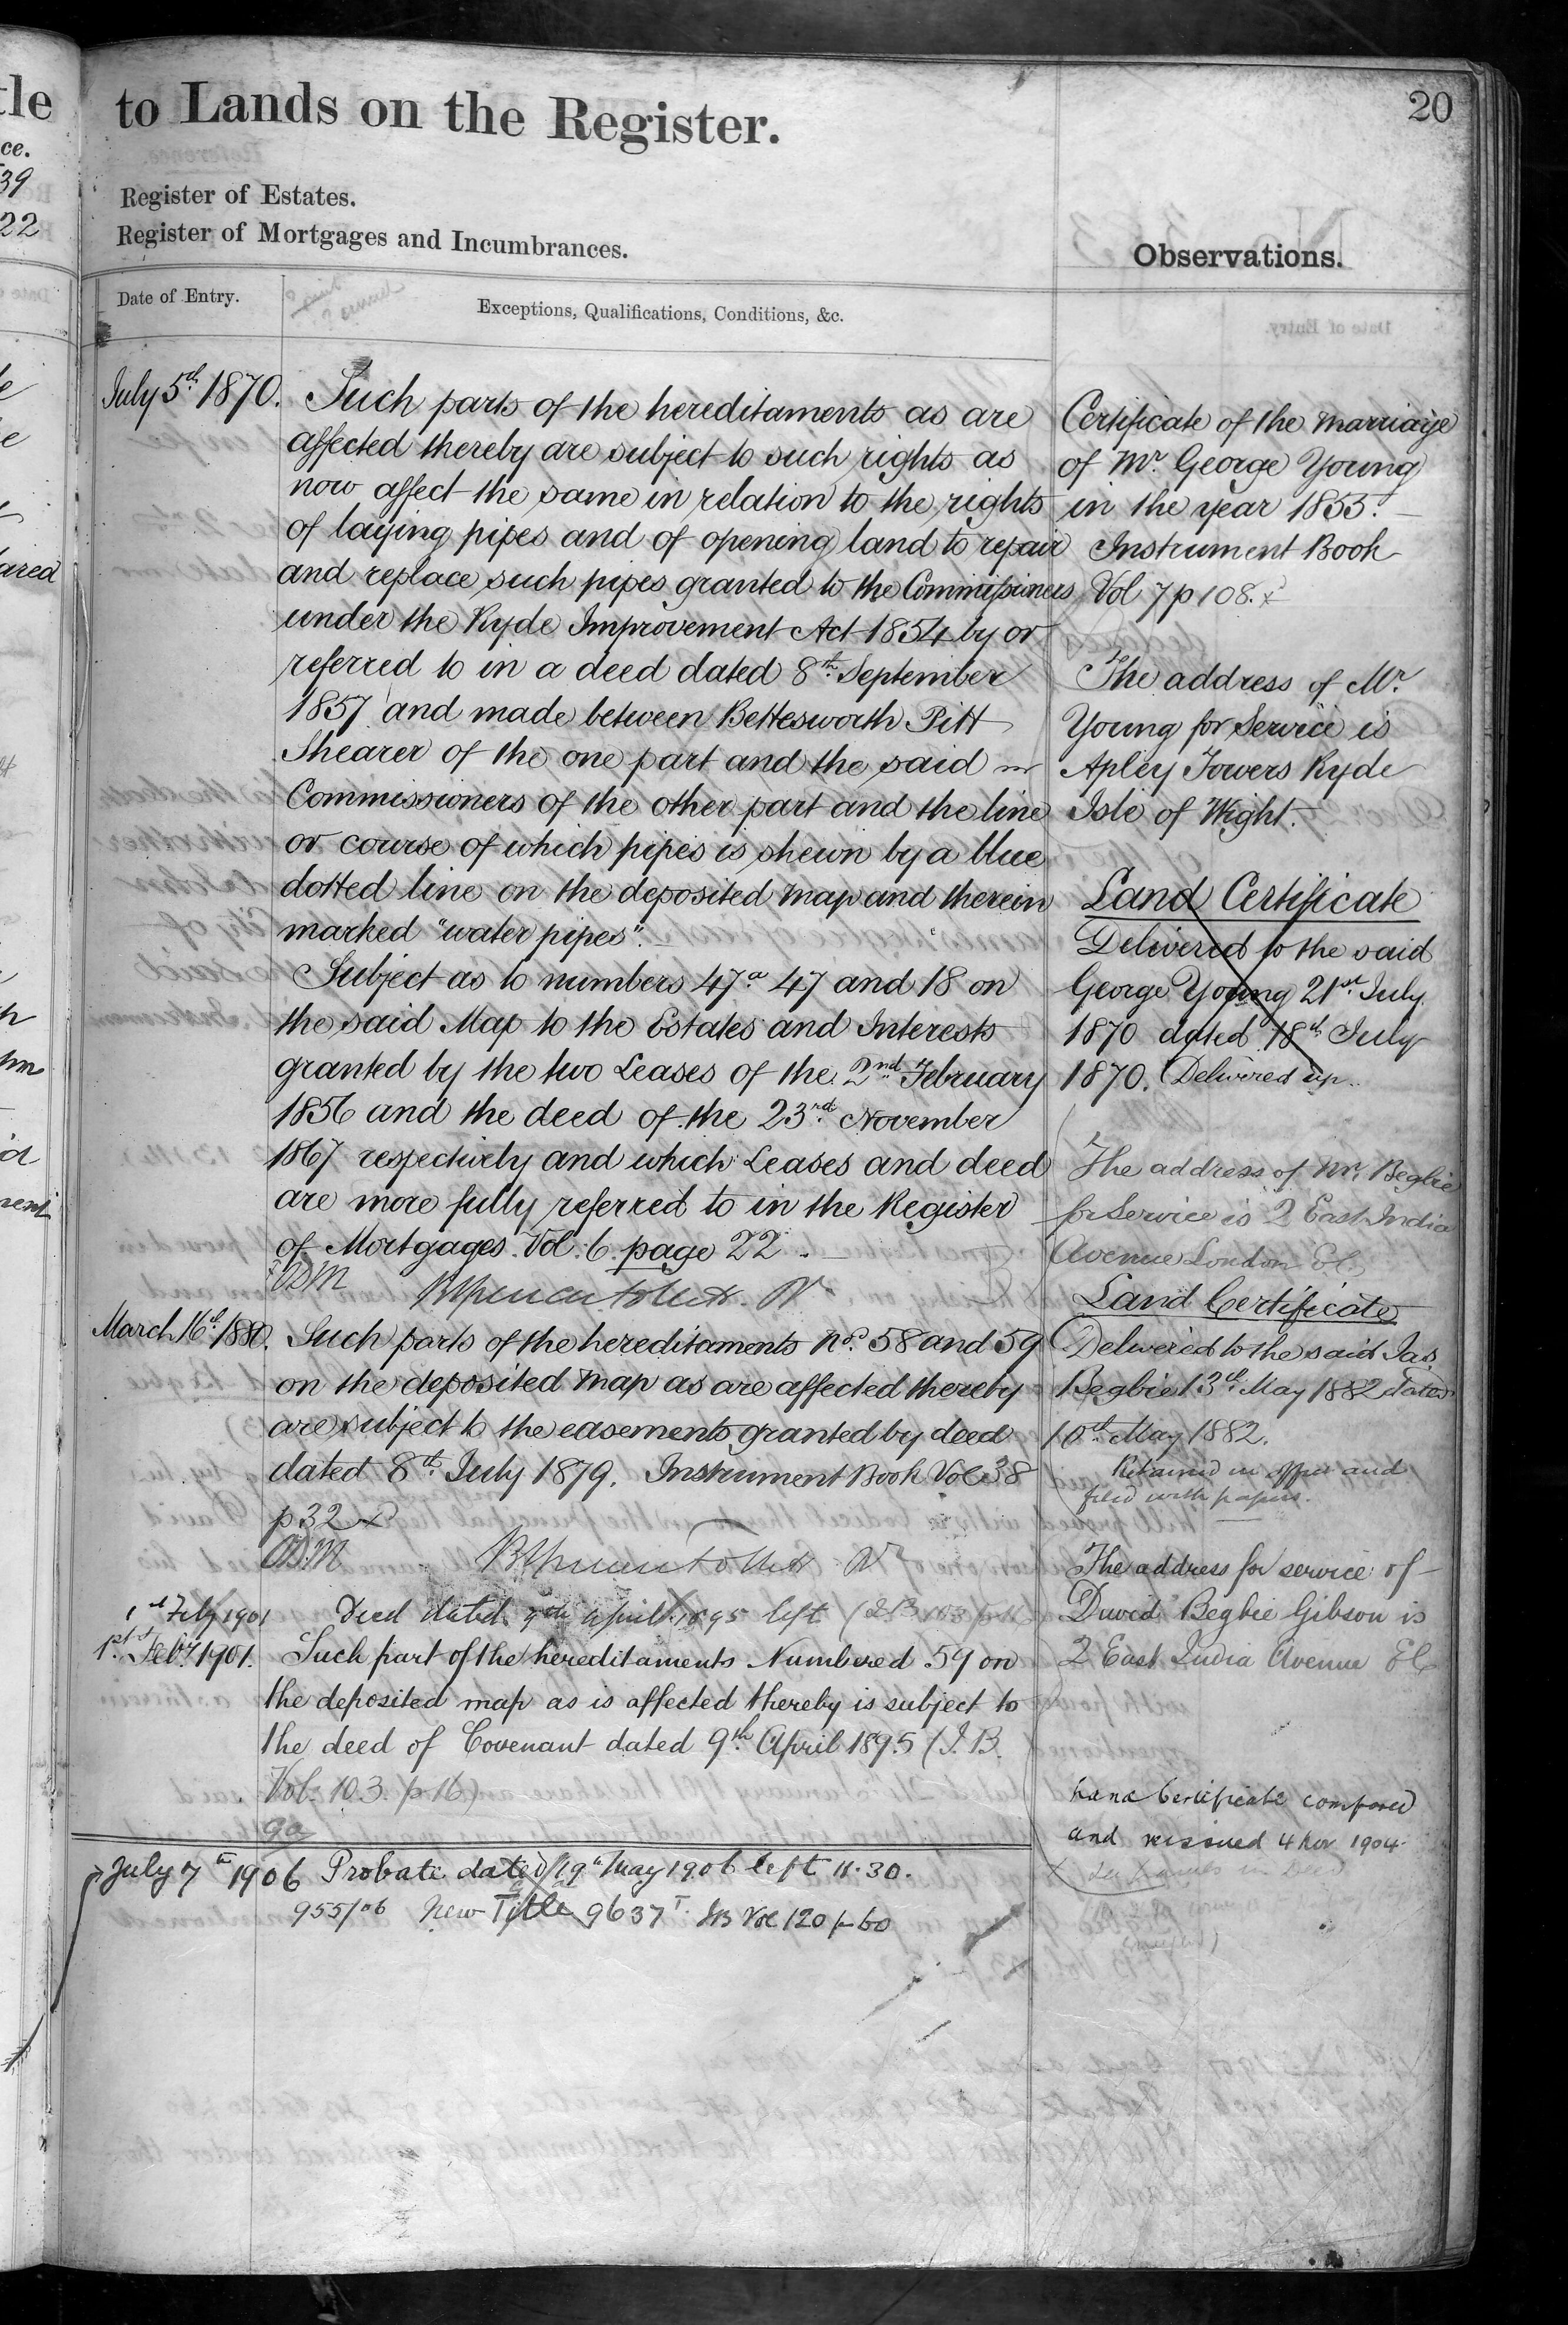 to Lands on the Register.
20
Register of Estates.
Register of Mortgages and Incumbrances.
Observations.
Date of Entry.
Exceptions, Qualifications, Conditions, &c.
July 5th 1870.
Such parts of the hereditaments as are
affected thereby are subject to such rights as
now affect the same in relation to the rights
of laying pipes and of opening land to repair
and replace such pipes granted to the Commissioners
under the Ryde Improvement Act 1854 by or
referred to in a deed dated 8th September
1857 and made between Bettesworth Pitt
Shearer of the one part and the said
Commissioners of the other part and the line
or course of which pipes is shewn by a blue
dotted line on the deposited map and therein
marked "water pipes".
Subject as to numbers 47a 47 and 18 on
the said Map to the Estates and Interests
granted by the two Leases of the 2nd February
1856 and the deed of the 23rd November
1867 respectively and which Leases and deed
are more fully referred to in the Register
of Mortgages Vol. 6. page 22.
March 16th 1880.
Such parts of the hereditaments Nos. 58 and 59
on the deposited map as are affected thereby
are subject to the easements granted by deed
dated 8th July 1879. Instrument Book Vol 38
p 32
1st Feby 1901
Deed dated 9th April 1895 left
1st Feby 1901.
Such part of the hereditaments Numbered 59 on
the deposited map as is affected thereby is subject to
the deed of Covenant dated 9th April 1895 (I.B.
Vol. 103. p 16)
July 7th 1906 Probate dated 19th May 1906 left 11.30.
955/06 New Title 9637 IB Vol 120 p 60
Certificate of the Marriage
of Mr. George Young
in the year 1853.
Instrument Book
Vol 7 p 108.
The address of Mr.
Young for Service is
Apley Towers Ryde
Isle of Wight.
Land Certificate
Delivered to the said
George Young 21st July
1870 dated 18th July
1870. Delivered up.
The address of Mr. Begbie
for Service is 2 East India
Avenue London EC
Land Certificate
Delivered to the said Jas.
Begbie 13th May 1882 dated
10th May 1882.
Retained in office and
filed with papers.
The address for service of
David Begbie Gibson is
2 East India Avenue EC
Land Certificate compared
and reissued 4 Nov 1904